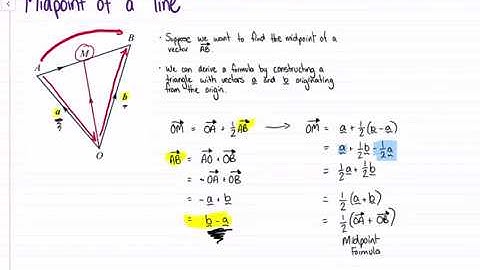 Midpoint of a line
B
M
A
a
b
O
· Suppose we want to find the midpoint of a
vector AB.
· We can derive a formula by constructing a
triangle with vectors a and b originating
from the origin.
OM = OA + 1/2 AB → OM = a + 1/2(b - a)
AB = AO + OB
= a + 1/2 b - 1/2 a
= -OA + OB
= 1/2 a + 1/2 b
= -a + b
= 1/2 (a + b)
= b - a
= 1/2 (OA + OB)
Midpoint
Formula